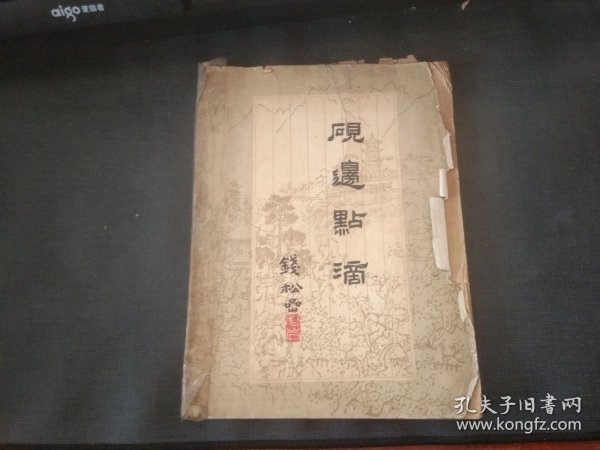 aigo 爱国者
硯邊點滴
錢松喦
孔夫子旧书网
www.kongfz.com